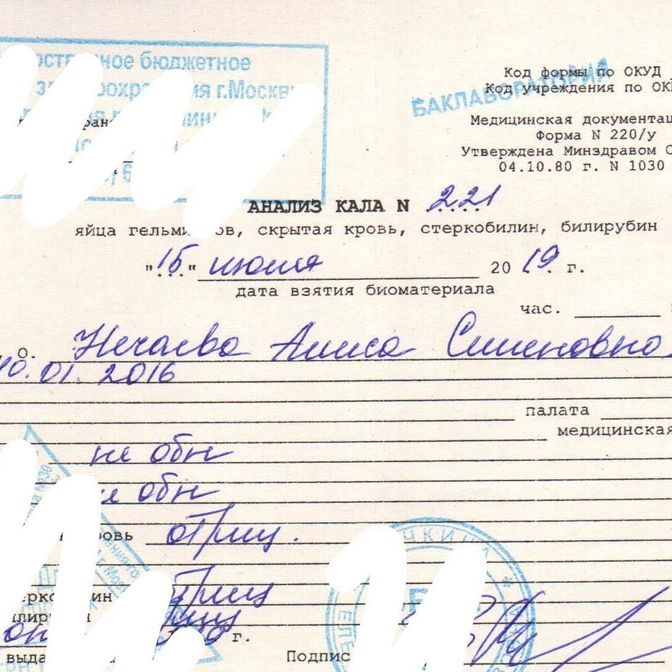 бюджетное
г.Москв
БАКЛАБОРАТОРИЯ
Код формы по ОКУД
Код учреждения по ОК
Медицинская документац
Форма N 220/у
Утверждена Минздравом С
04.10.80 г. N 1030
АНАЛИЗ КАЛА N 221
яйца гельм ов, скрытая кровь, стеркобилин, билирубин
"15" июня 2019 г.
дата взятия биоматериала
час.
о. Нечаева Алиса Семеновна
10.01.2016
палата
медицинская
не обн
обн
ровь отриц.
ерко ин отриц
илируб
г.
выда Подпис